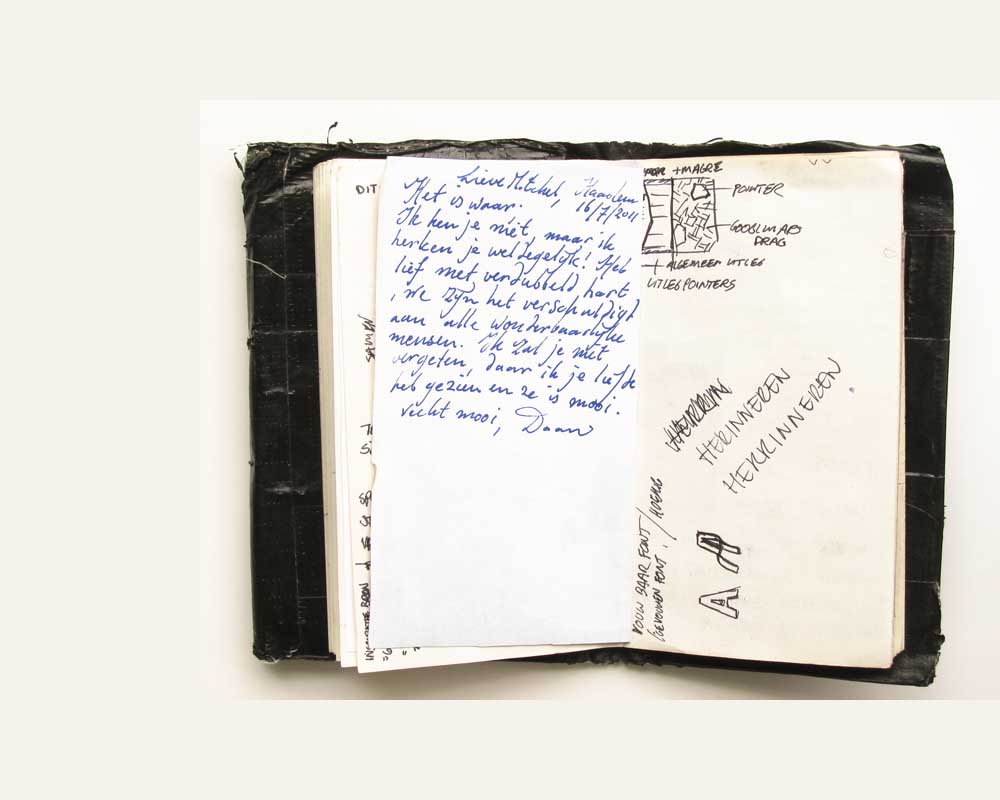 DIT
SAMEN
Lieve Mitchel, Haarlem
16/7/2011
Het is waar.
Ik ken je niét, maar ik
herken je wel degelijk! Heb
lief met verdubbeld hart
, we zijn het verschuldigt
aan alle wonderbaarlijke
mensen. Ik zal je niet
vergeten, daar ik je liefde
heb gezien en ze is mooi.
Vecht mooi, Daan
+MAGRE
POINTER
GOOGLMAPS
DRAG
+ ALGEMEEN UITLEG
UITLEG POINTERS
HERINNEREN
HERRINNEREN
VOUW BAAR FONT /
GEVOUWEN FONT.
A A